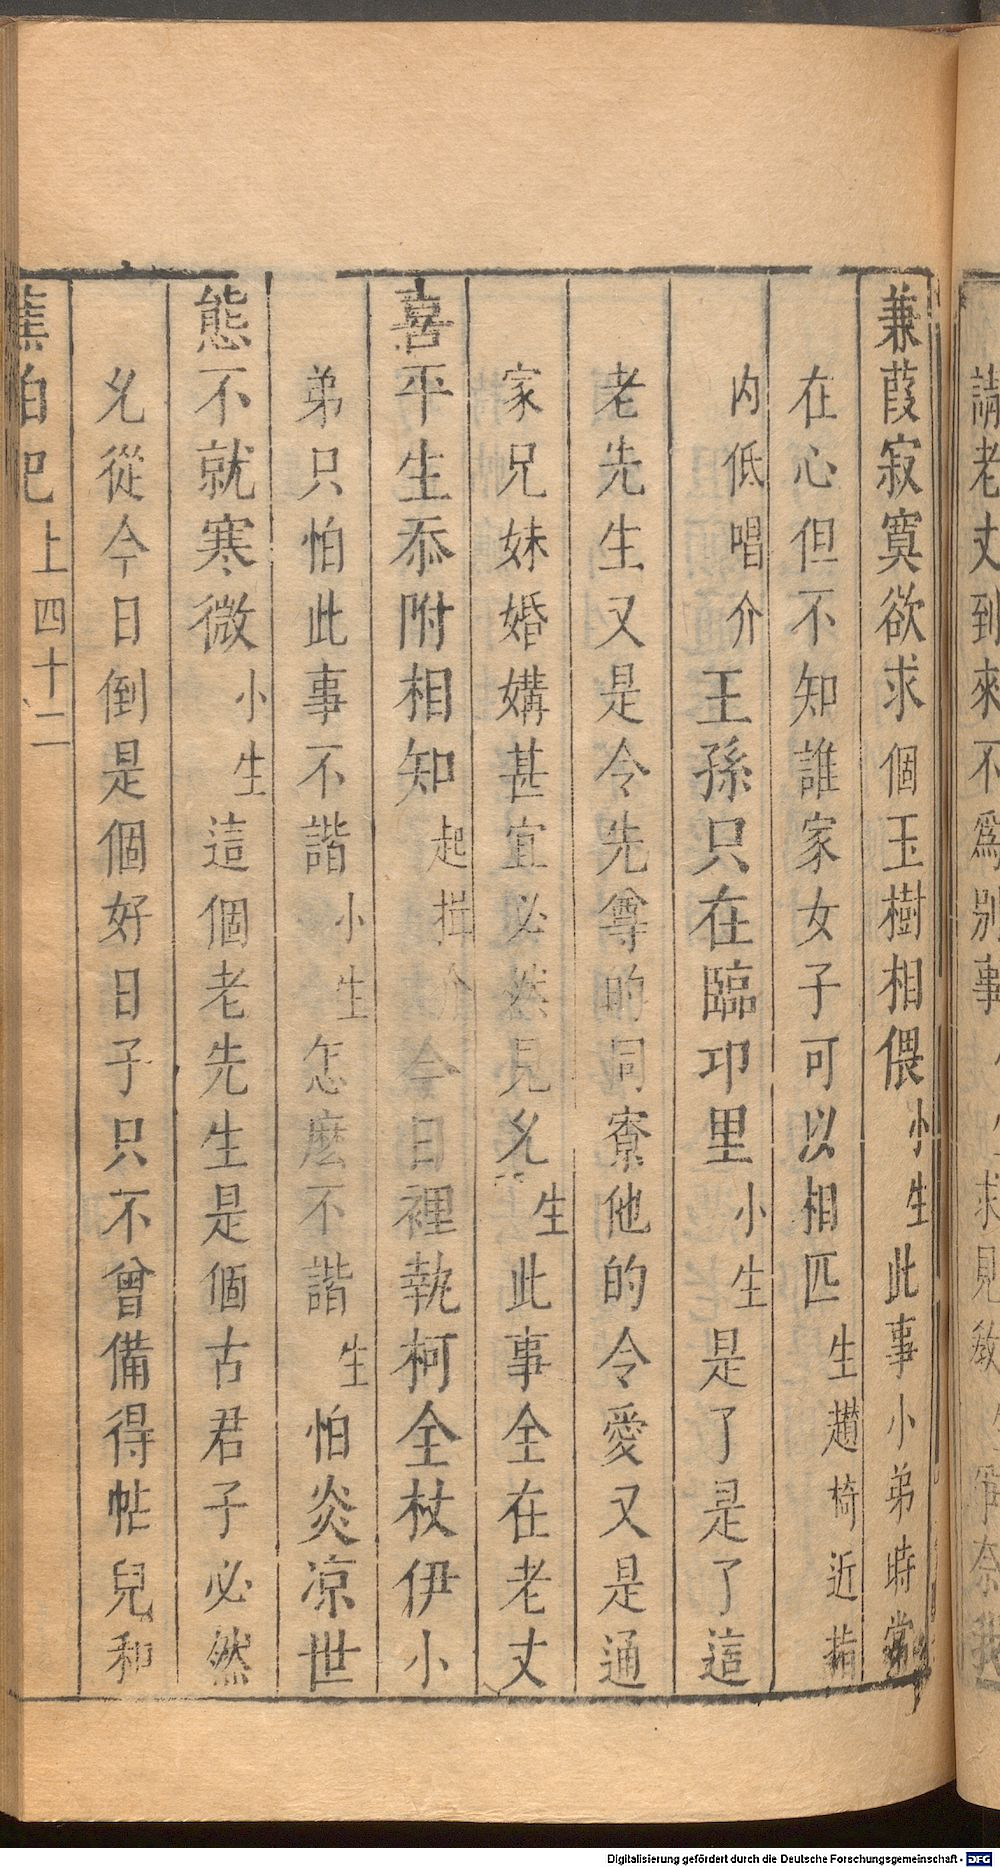 請老丈到來不為別事 求見 奈我
兼葭寂寞欲求個玉樹相偎小生此事小弟時常
在心但不知誰家女子可以相匹生趲椅近指
内低唱介王孫只在臨卭里小生是了是了這
老先生又是令先尊的同寮他的令愛又是通
家兄妹婚媾甚宜必然見允生此事全在老丈
喜平生忝附相知起揖介今日裡執柯全杖伊小
弟只怕此事不諧小生怎麽不諧生怕炎凉世
態不就寒微小生這個老先生是個古君子必然
允從今日倒是個好日子只不曾備得帖兒和
蕉帕記 上 四十二
Digitalisierung gefördert durch die Deutsche Forschungsgemeinschaft - DFG